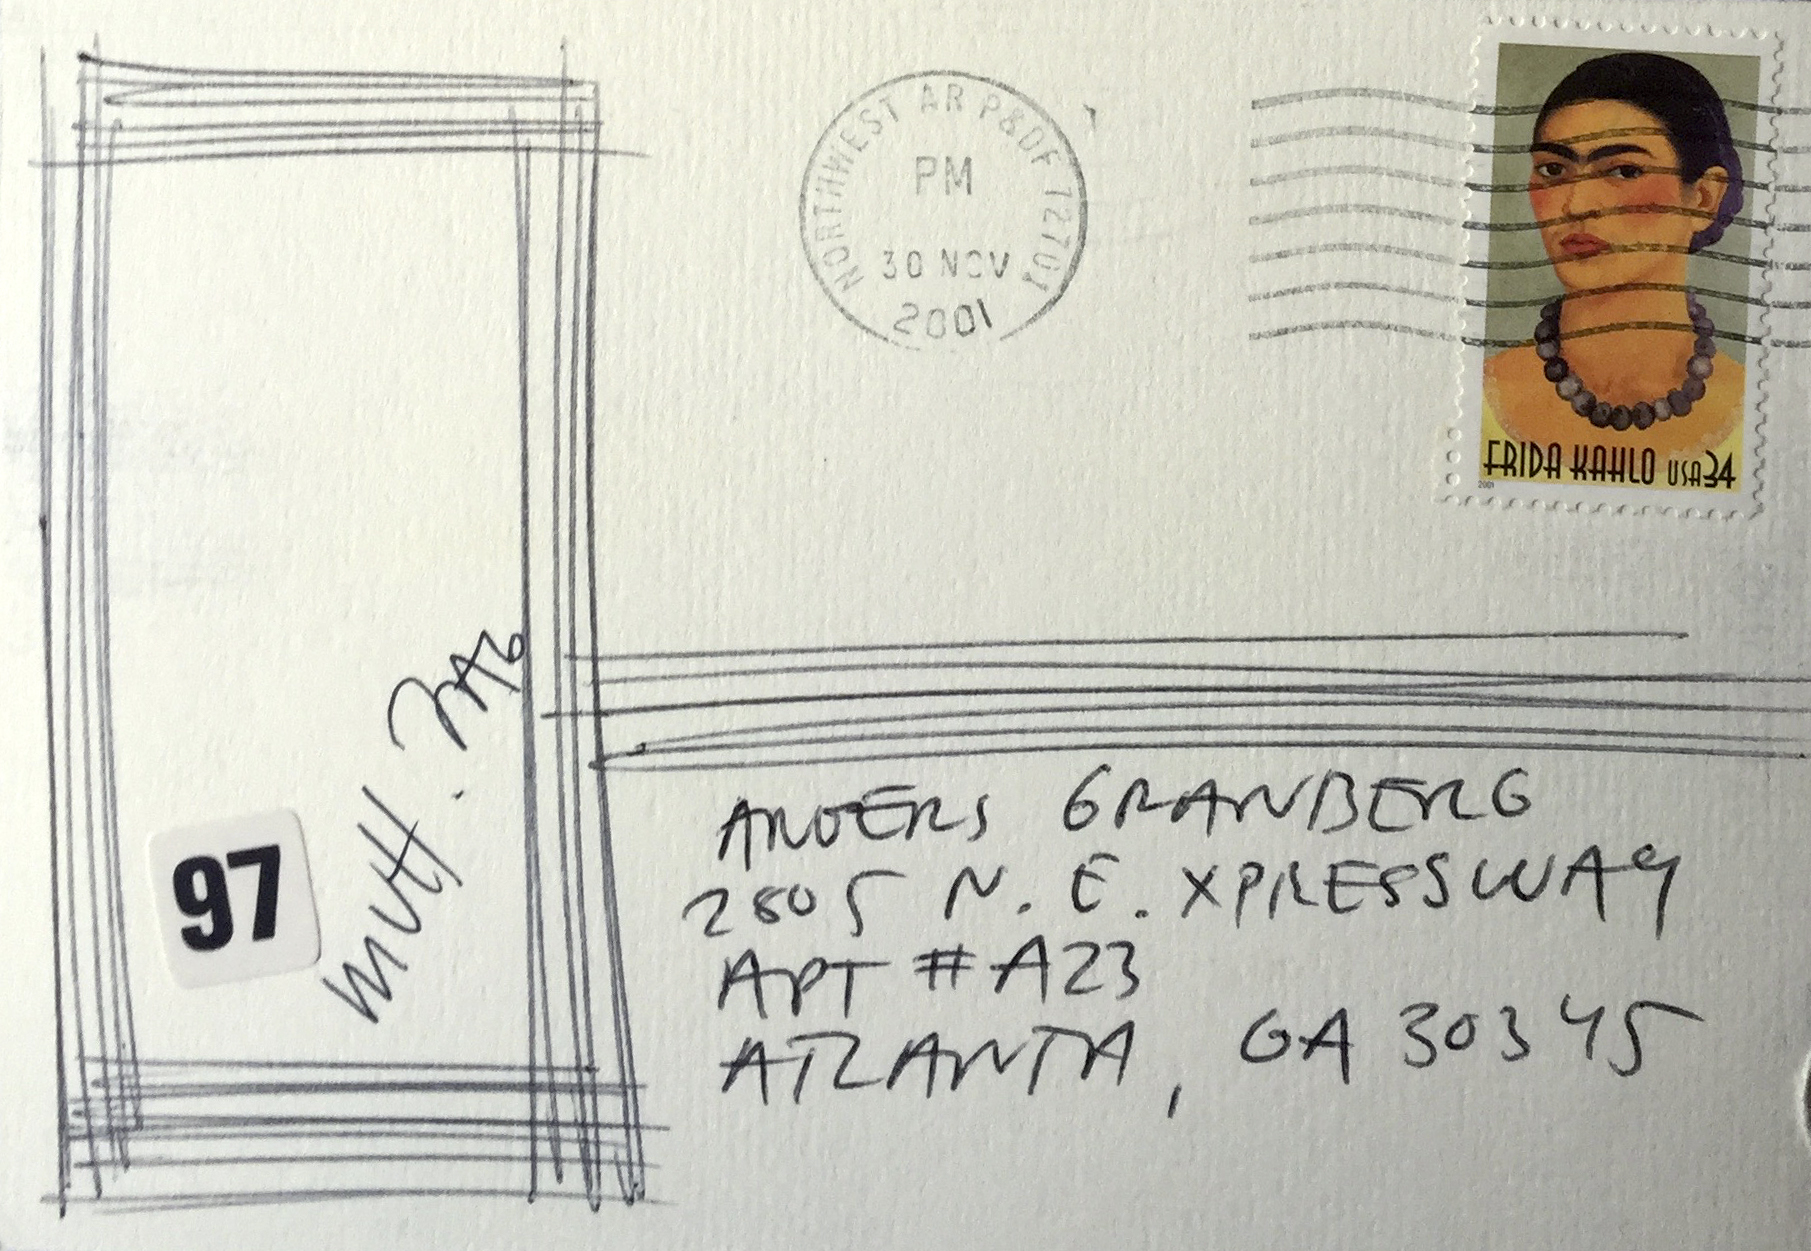 NORTHWEST AR P&DF 72701
PM
30 NOV
2001
FRIDA KAHLO USA 34
2001
97
ANDERS GRANBERG
2805 N. E. XPRESSWAY
APT # A23
ATLANTA, GA 30345